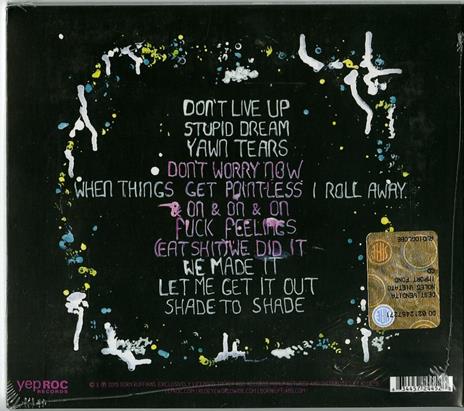 DON'T LIVE UP
STUPID DREAM
YAWN TEARS
DON'T WORRY NOW
WHEN THINGS GET POINTLESS I ROLL AWAY
& ON & ON & ON
FUCK FEELINGS
(EAT SHIT) WE DID IT
WE MADE IT
LET ME GET IT OUT
SHADE TO SHADE
DEST. VENDITA
NOLEG. VIETATO
IMPORT. FONO
yep ROC
RECORDS